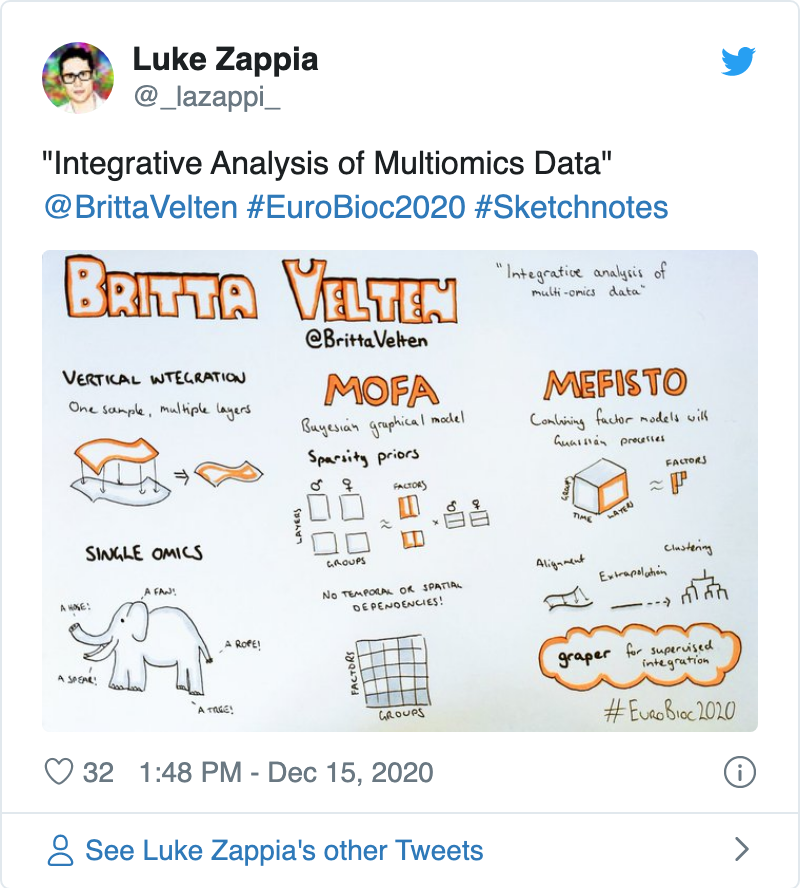 Luke Zappia
@_lazappi_
"Integrative Analysis of Multiomics Data"
@BrittaVelten #EuroBioc2020 #Sketchnotes
BRITTA VELTEN
@BrittaVelten
"Integrative analysis of
multi-omics data"
VERTICAL INTEGRATION
One sample, multiple layers
SINGLE OMICS
A HOSE!
A FAN!
A ROPE!
A SPEAR!
A TREE!
MOFA
Bayesian graphical model
Sparsity priors
♂ ♀
LAYERS
GROUPS
≈
FACTORS
×
♂ ♀
NO TEMPORAL OR SPATIAL
DEPENDENCIES!
FACTORS
GROUPS
MEFISTO
Combining factor models with
Guassian processes
GROUP
TIME
LAYERS
≈
FACTORS
Alignment
Extrapolation
Clustering
graper for supervised
integration
#EuroBioc2020
32 1:48 PM - Dec 15, 2020
See Luke Zappia's other Tweets